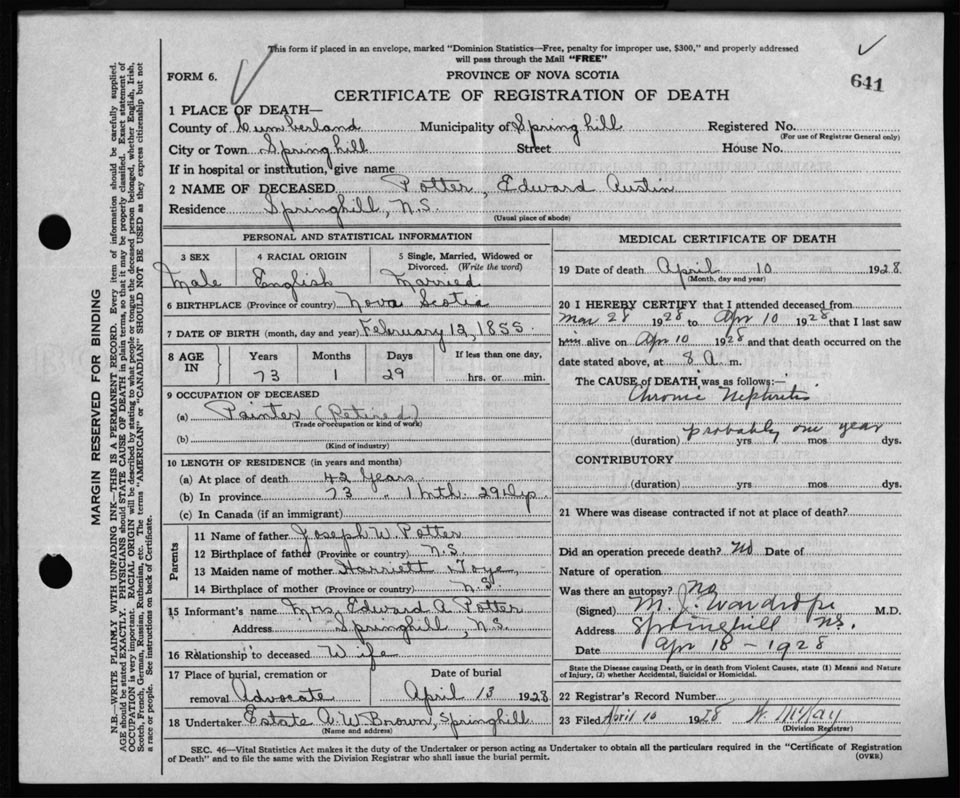 This form if placed in an envelope, marked "Dominion Statistics—Free, penalty for improper use, $300," and properly addressed
will pass through the Mail "FREE"
FORM 6.
PROVINCE OF NOVA SCOTIA
641
CERTIFICATE OF REGISTRATION OF DEATH
1 PLACE OF DEATH—
County of Cumberland Municipality of Springhill Registered No.
(For use of Registrar General only)
City or Town Springhill Street House No.
If in hospital or institution, give name
2 NAME OF DECEASED Potter, Edward Austin
Residence Springhill, N.S.
(Usual place of abode)
PERSONAL AND STATISTICAL INFORMATION
3 SEX 4 RACIAL ORIGIN 5 Single, Married, Widowed or Divorced. (Write the word)
Male English Married
6 BIRTHPLACE (Province or country) Nova Scotia
7 DATE OF BIRTH (month, day and year) February 12, 1855.
8 AGE IN Years Months Days If less than one day,
73 1 29 hrs. or min.
9 OCCUPATION OF DECEASED
(a) Painter (Retired)
(Trade or occupation or kind of work)
(b)
(Kind of industry)
10 LENGTH OF RESIDENCE (in years and months)
(a) At place of death 42 Years
(b) In province 73 " 1 mth. 29 dys
(c) In Canada (if an immigrant)
Parents
11 Name of father Joseph W. Potter
12 Birthplace of father (Province or country) N.S.
13 Maiden name of mother Harriett
14 Birthplace of mother (Province or country) N.S
15 Informant's name Mrs. Edward A Potter
Address Springhill, N.S.
16 Relationship to deceased Wife
17 Place of burial, cremation or Date of burial
removal Advocate April 13 1928
18 Undertaker Estate A.W. Brown, Springhill
(Name and address)
MEDICAL CERTIFICATE OF DEATH
19 Date of death April 10 1928
(Month, day and year)
20 I HEREBY CERTIFY that I attended deceased from
Mar 28 1928 to Apr 10 1928 that I last saw
him alive on Apr 10 1928 and that death occurred on the
date stated above, at 8 A m.
The CAUSE of DEATH was as follows:—
Chronic Nephritis
probably one year
(duration) yrs. mos. dys.
CONTRIBUTORY
(duration) yrs. mos. dys.
21 Where was disease contracted if not at place of death?
Did an operation precede death? No Date of
Nature of operation
Was there an autopsy? No
(Signed) M. J. Wardrope M.D.
Address Springhill NS.
Date Apr 18 - 1928
State the Disease causing Death, or in death from Violent Causes, state (1) Means and Nature
of Injury, (2) whether Accidental, Suicidal or Homicidal.
22 Registrar's Record Number
23 Filed April 10 1928 W. McKay
(Division Registrar)
SEC. 46—Vital Statistics Act makes it the duty of the Undertaker or person acting as Undertaker to obtain all the particulars required in the "Certificate of Registration
of Death" and to file the same with the Division Registrar who shall issue the burial permit.
(OVER)
MARGIN RESERVED FOR BINDING
N.B.—WRITE PLAINLY WITH UNFADING INK—THIS IS A PERMANENT RECORD. Every item of information should be carefully supplied.
AGE should be stated EXACTLY. PHYSICIANS should STATE CAUSE OF DEATH in plain terms, so that it may be properly classified. Exact statement of
OCCUPATION is very important. RACIAL ORIGIN will be described by stating to what people or tongue the deceased person belonged, whether English, Irish,
Scotch, French, German, Russian, Ruthenian, etc. The terms "AMERICAN" or "CANADIAN" SHOULD NOT BE USED as they express citizenship but not
a race or people. See instructions on back of Certificate.